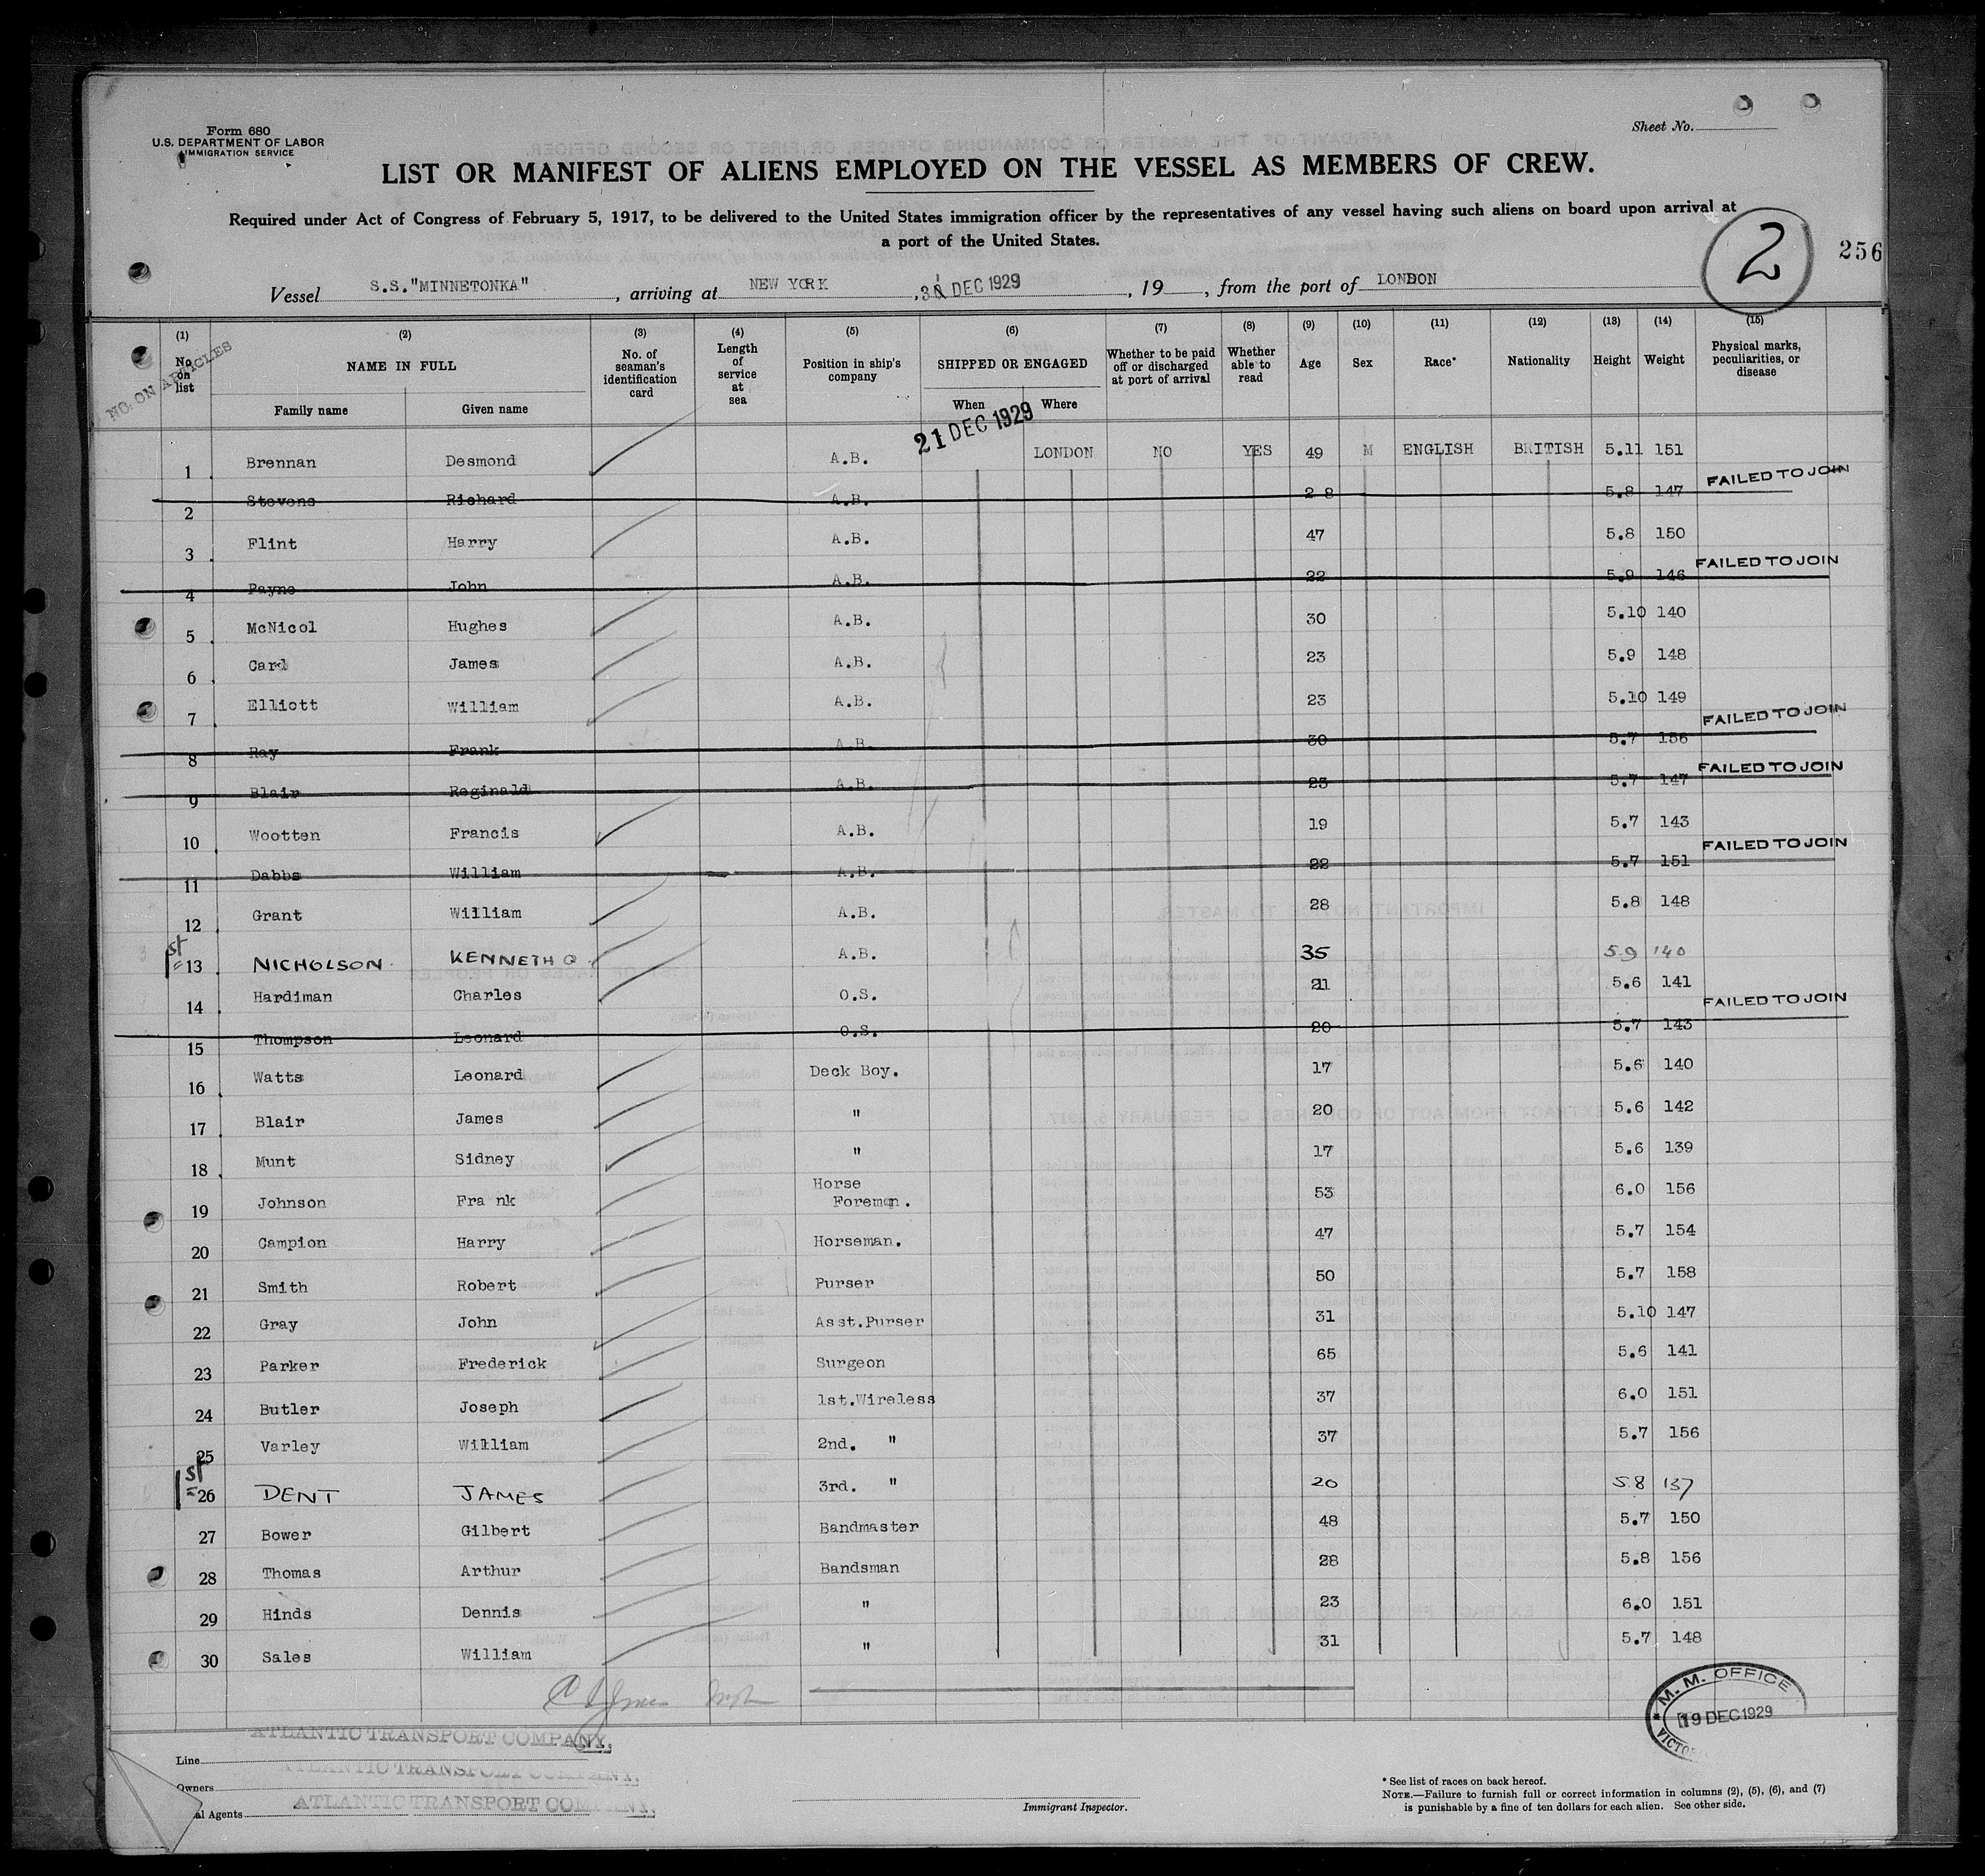 Form 680
U.S. DEPARTMENT OF LABOR
IMMIGRATION SERVICE
Sheet No.
LIST OR MANIFEST OF ALIENS EMPLOYED ON THE VESSEL AS MEMBERS OF CREW.
Required under Act of Congress of February 5, 1917, to be delivered to the United States immigration officer by the representatives of any vessel having such aliens on board upon arrival at
a port of the United States.
2
256
Vessel S.S."MINNETONKA", arriving at NEW YORK, DEC 1929, 19, from the port of LONDON
(1) (2) (3) (4) (5) (6) (7) (8) (9) (10) (11) (12) (13) (14) (15)
NO. ON ARTICLES
No. on list NAME IN FULL No. of seaman's identification card Length of service at sea Position in ship's company SHIPPED OR ENGAGED Whether to be paid off or discharged at port of arrival Whether able to read Age Sex Race* Nationality Height Weight Physical marks, peculiarities, or disease
Family name Given name When Where
21 DEC 1929
1 Brennan Desmond A.B. LONDON NO YES 49 M ENGLISH BRITISH 5.11 151
2 Stevens Richard A.B. 28 5.8 147 FAILED TO JOIN
3 Flint Harry A.B. 47 5.8 150
4 Payne John A.B. 22 5.9 146 FAILED TO JOIN
5 McNicol Hughes A.B. 30 5.10 140
6 Card James A.B. 23 5.9 148
7 Elliott William A.B. 23 5.10 149
8 Ray Frank A.B. 30 5.7 156 FAILED TO JOIN
9 Blair Reginald A.B. 23 5.7 147 FAILED TO JOIN
10 Wootten Francis A.B. 19 5.7 143
11 Dabbs William A.B. 22 5.7 151 FAILED TO JOIN
12 Grant William A.B. 28 5.8 148
1st 13 NICHOLSON KENNETH G A.B. 35 5.9 140
14 Hardiman Charles O.S. 21 5.6 141
15 Thompson Leonard O.S. 20 5.7 143 FAILED TO JOIN
16 Watts Leonard Deck Boy. 17 5.6 140
17 Blair James " 20 5.6 142
18 Munt Sidney " 17 5.6 139
19 Johnson Fra nk Horse Foreman. 53 6.0 156
20 Campion Harry Horseman. 47 5.7 154
21 Smith Robert Purser 50 5.7 158
22 Gray John Asst.Purser 31 5.10 147
23 Parker Frederick Surgeon 65 5.6 141
24 Butler Joseph 1st.Wireless 37 6.0 151
25 Varley William 2nd. " 37 5.7 156
1st 26 DENT JAMES 3rd. " 20 5.8 137
27 Bower Gilbert Bandmaster 48 5.7 150
28 Thomas Arthur Bandsman 28 5.8 156
29 Hinds Dennis " 23 6.0 151
30 Sales William " 31 5.7 148
M. M. OFFICE
19 DEC 1929
ATLANTIC TRANSPORT COMPANY,
Line
ATLANTIC TRANSPORT COMPANY,
Owners
ATLANTIC TRANSPORT COMPANY,
al Agents
Immigrant Inspector.
* See list of races on back hereof.
NOTE.—Failure to furnish full or correct information in columns (2), (5), (6), and (7)
is punishable by a fine of ten dollars for each alien. See other side.